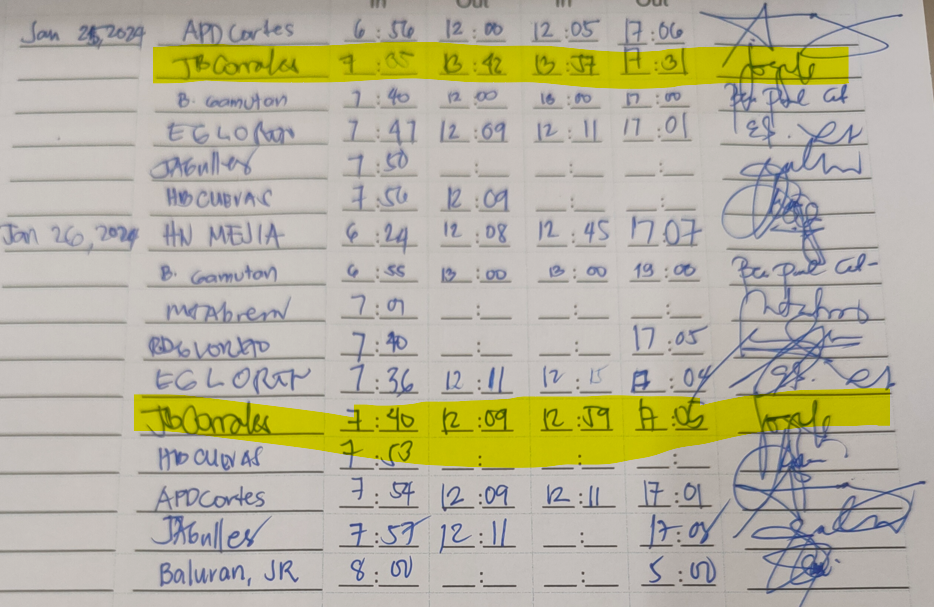 In Out In Out
Jan 25, 2024 APDCortes 6:56 12:00 12:05 17:06
JBCorrales 7:05 13:42 13:57 17:31
B. Gamuton 7:40 12:00 17:00
EGLORAN 7:47 12:09 12:11 17:01
JAGulles 7:50 __:__ __:__ __:__
HDCUEVAS 7:56 12:09 __:__ __:__
Jan 26, 2024 HN MEJIA 6:24 12:08 12:45 17:07
B. Gamuton 6:55 13:00 13:00 19:00
7:01 __:__ __:__ __:__
7:40 __:__ __:__ 17:05
EGLORAN 7:36 12:11 12:15 17:04
JBCorrales 7:40 12:09 12:59 17:05
HDCUEVAS 7:53 __:__ __:__ __:__
APDCortes 7:54 12:09 12:11 17:01
JAGulles 7:57 12:11 __:__ 17:08
Baluran, JR 8:00 __:__ __:__ 5:00